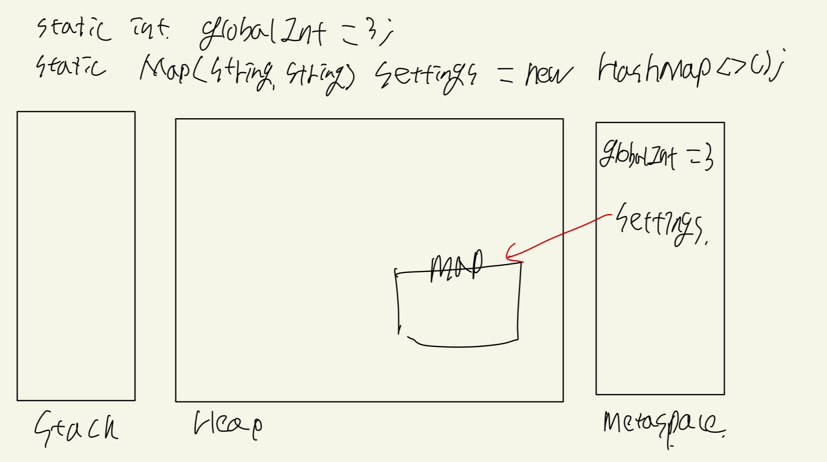 static int globalInt = 3;
static Map(String, String) settings = new HashMap<>();
globalInt = 3
settings.
MAP
Stack
Heap
Metaspace.